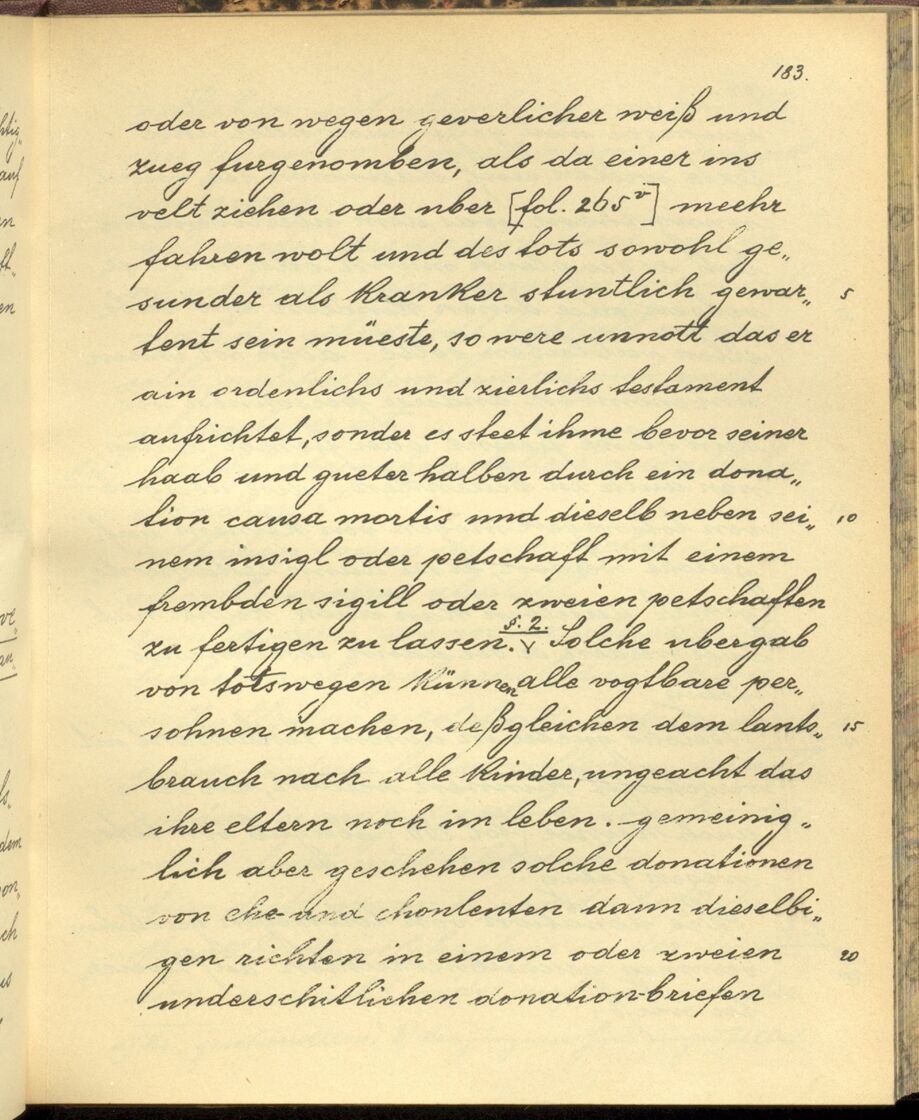 183.
oder von wegen geverlicher weiß und
zueg furgenomben, als da einer ins
velt ziehen oder uber [fol. 265v] meehr
fahren wolt und des tots sowohl ge„
sunder als kranker stuntlich gewar„ 5
tent sein müeste, so were unnott das er
ain ordenlichs und zierlichs testament
aufrichtet, sonder es steet ihme bevor seiner
haab und gueter halben durch ein dona„
tion causa mortis und dieselb neben sei„ 10
nem insigl oder petschaft mit einem
frembden sigill oder zweien petschaften
zu fertigen zu lassen. §. 2. Solche ubergab
von totswegen künnen alle vogtbare per„
sohnen machen, deßgleichen dem lants„ 15
brauch nach alle kinder, ungeacht das
ihre eltern noch im leben. gemeinig„
lich aber geschehen solche donationen
von ehe- und chonleuten dann dieselbi„
gen richten in einem oder zweien 20
underschitlichen donation-briefen